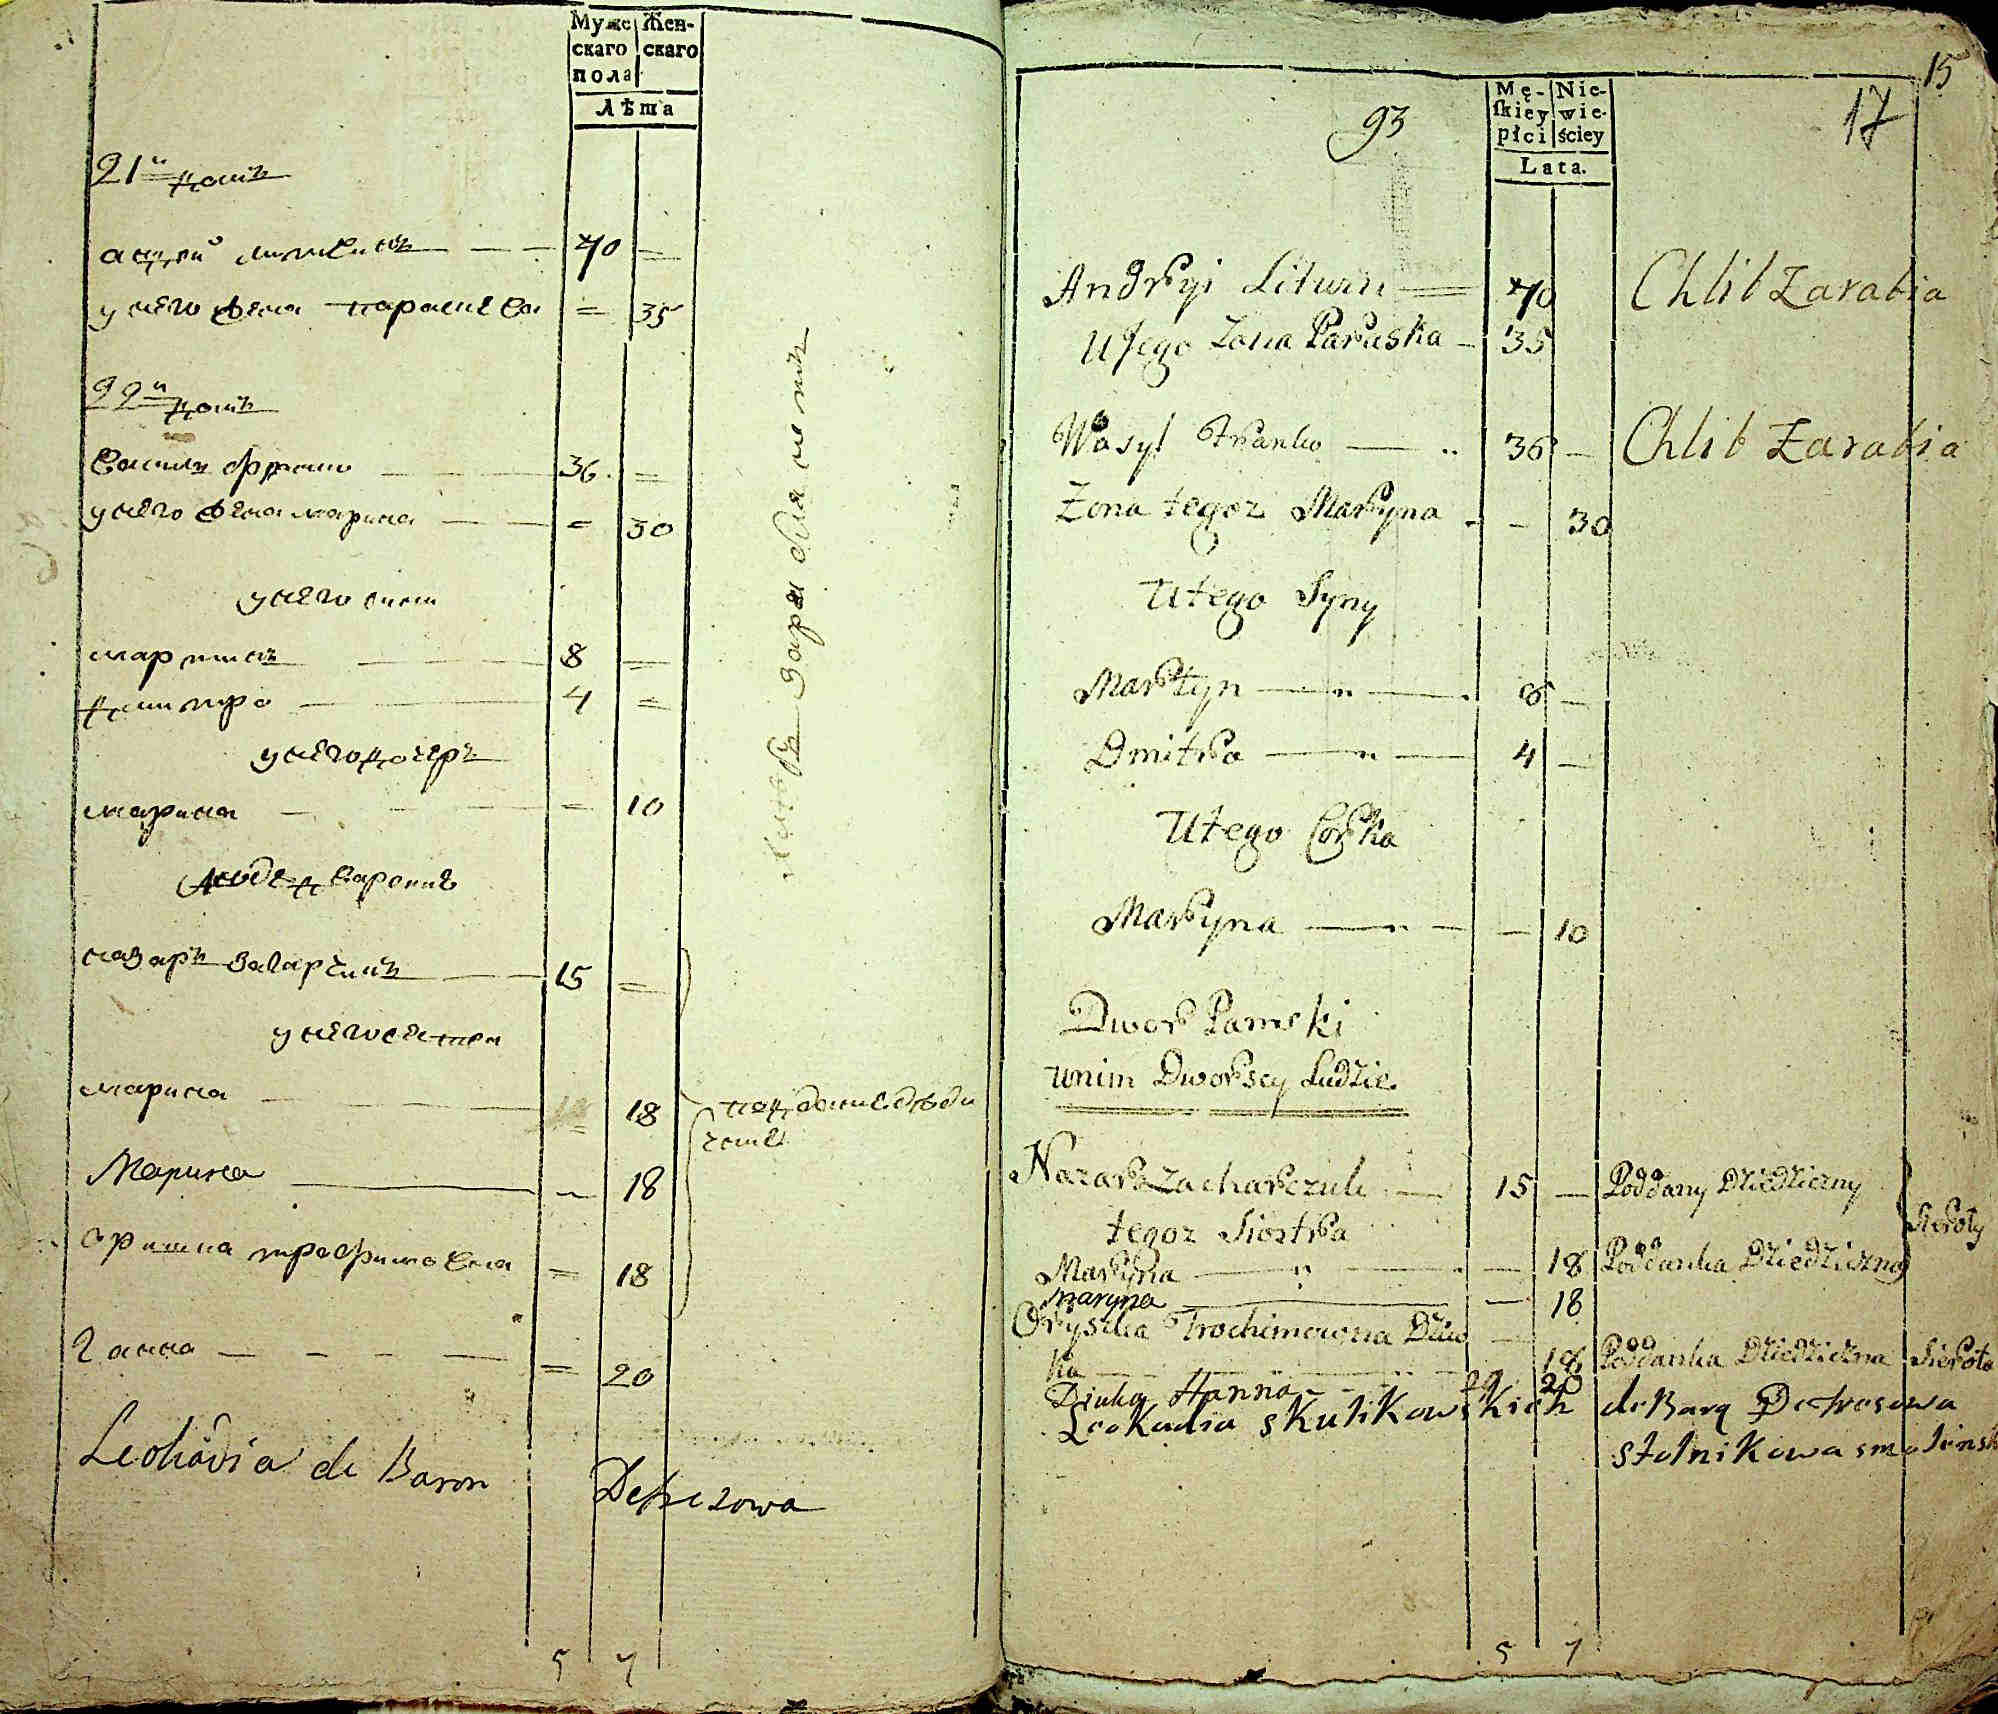 Муже Жен-
скаго скаго
пола
Лѣта
21й домъ
андрей литвинъ 40 =
у него жена параскева = 35
22й домъ
василь франко 36. =
у него жена марина = 30
у него сини
мартинъ 8 =
димитро 4 =
у него дочерь
марина = 10
назаръ захарчукъ 15 =
у него сестра
марина 18
Марина 18
оришка трофимовна = 18
Ганна = 20
хлѣбъ зарабляетъ
Leokadia de Baron Deprezowa
5 7
15
93
17
Mę- Nie-
ſkiey wie-
płci ściey
Lata.
Andryi Litwin 40 Chlib Zarabia
U Jego Zona Paraska 35
Wasyl Franko 36 Chlib Zarabia
Zona tegoz Maryna 30
U tego Syny
Martyn 8
Dmitra 4
U tego Corka
Maryna 10
Dwor Panski
u nim Dworscy Ludzie
Nazar Zacharczuk 15 Poddany Dziedziczny
tegoz Siostra Sieroty
Maryna 18 Poddanka Dziedziczna
Maryna 18
Oryszka Trochimowna Dziw
ka 18 Poddanka Dziedziczna Sierota
Dziwka Hanna 20
Leokadia skulikowskich de Barą
stolnikowa smolensk
5 7